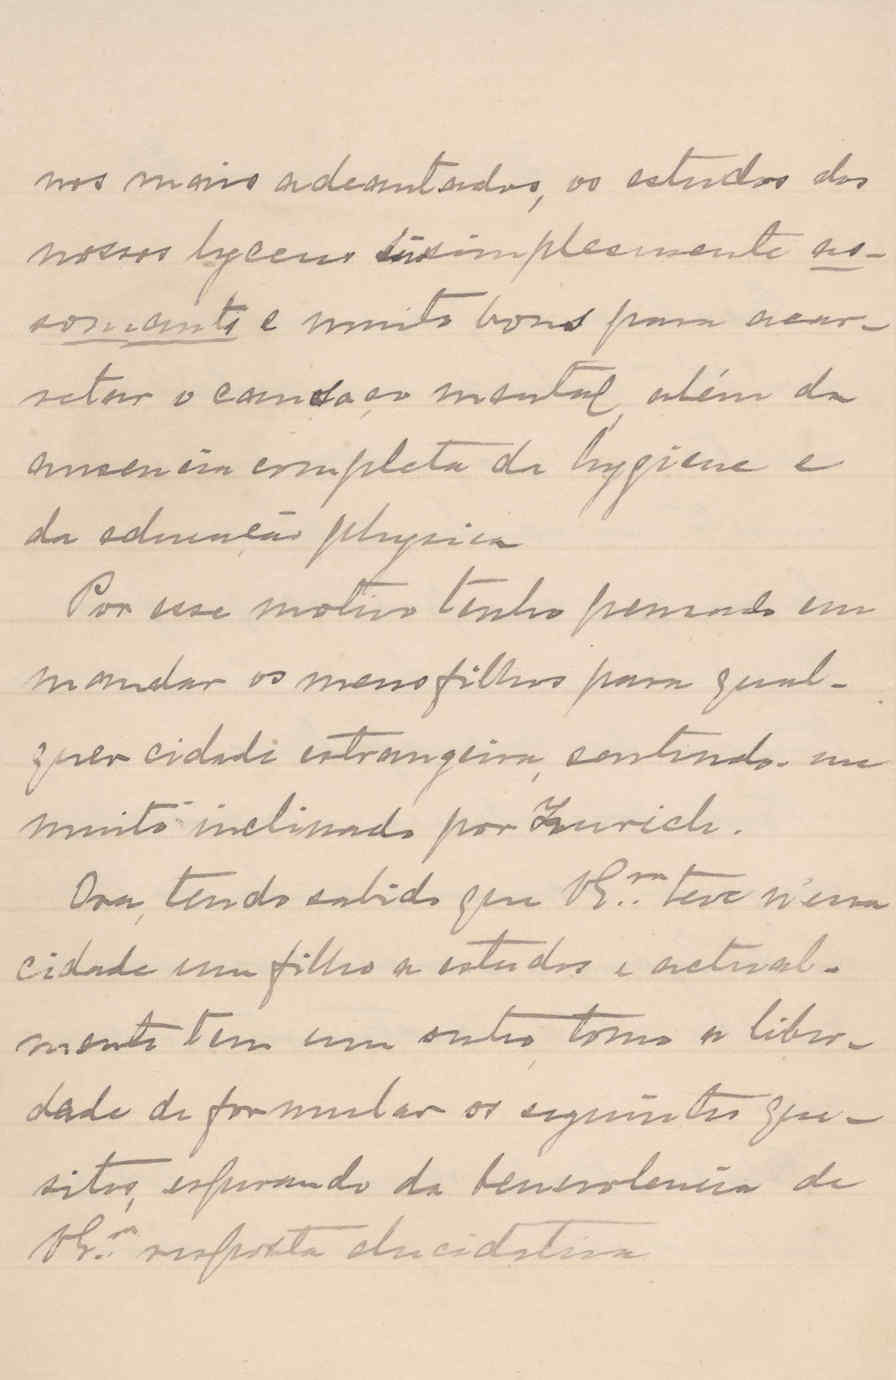 nos mais adeantados, os estudos dos
nossos lyceus são simplesmente as-
somante e muito bons para acar-
retar o cansaço mental, além da
ausencia completa da hygiene e
da educação physica
Por esse motivo tenho pensado em
mandar os meus filhos para qual-
quer cidade estrangeira, sentindo-me
muito inclinado por Zurich.
Ora, tendo sabido que V Ex.ma teve n'essa
cidade um filho a estudos e actual-
mente tem um outro, tomo a liber-
dade de formular os seguintes que-
sitos, esperando da benevolencia de
V Ex.ma resposta elucidativa